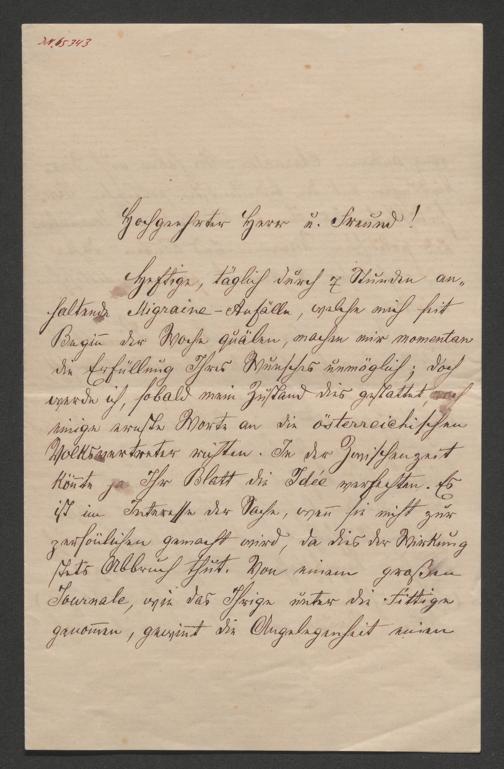 J.N. 65343
Hochgeehrter Herr u. Freund!
Heftige, täglich durch 7 Stunden an-
haltende Migraine-Anfälle, welche mich seit
Beginn der Woche quälen, machen mir momentan
die Erfüllung Ihres Wunsches unmöglich; doch
werde ich, sobald mein Zustand dies gestattet, noch
einige ernste Worte an die österreichischen
Volksvertreter richten. In der Zwischenzeit
könnte ja Ihr Blatt die Idee verfechten. Es
ist im Interesse der Sache, wenn sie nicht zur
persönlichen gemacht wird, da dies der Wirkung
stets Abbruch thut. Von einem großen
Journale, wie das Ihrige unter die Fittige
genommen, gewinnt die Angelegenheit einen